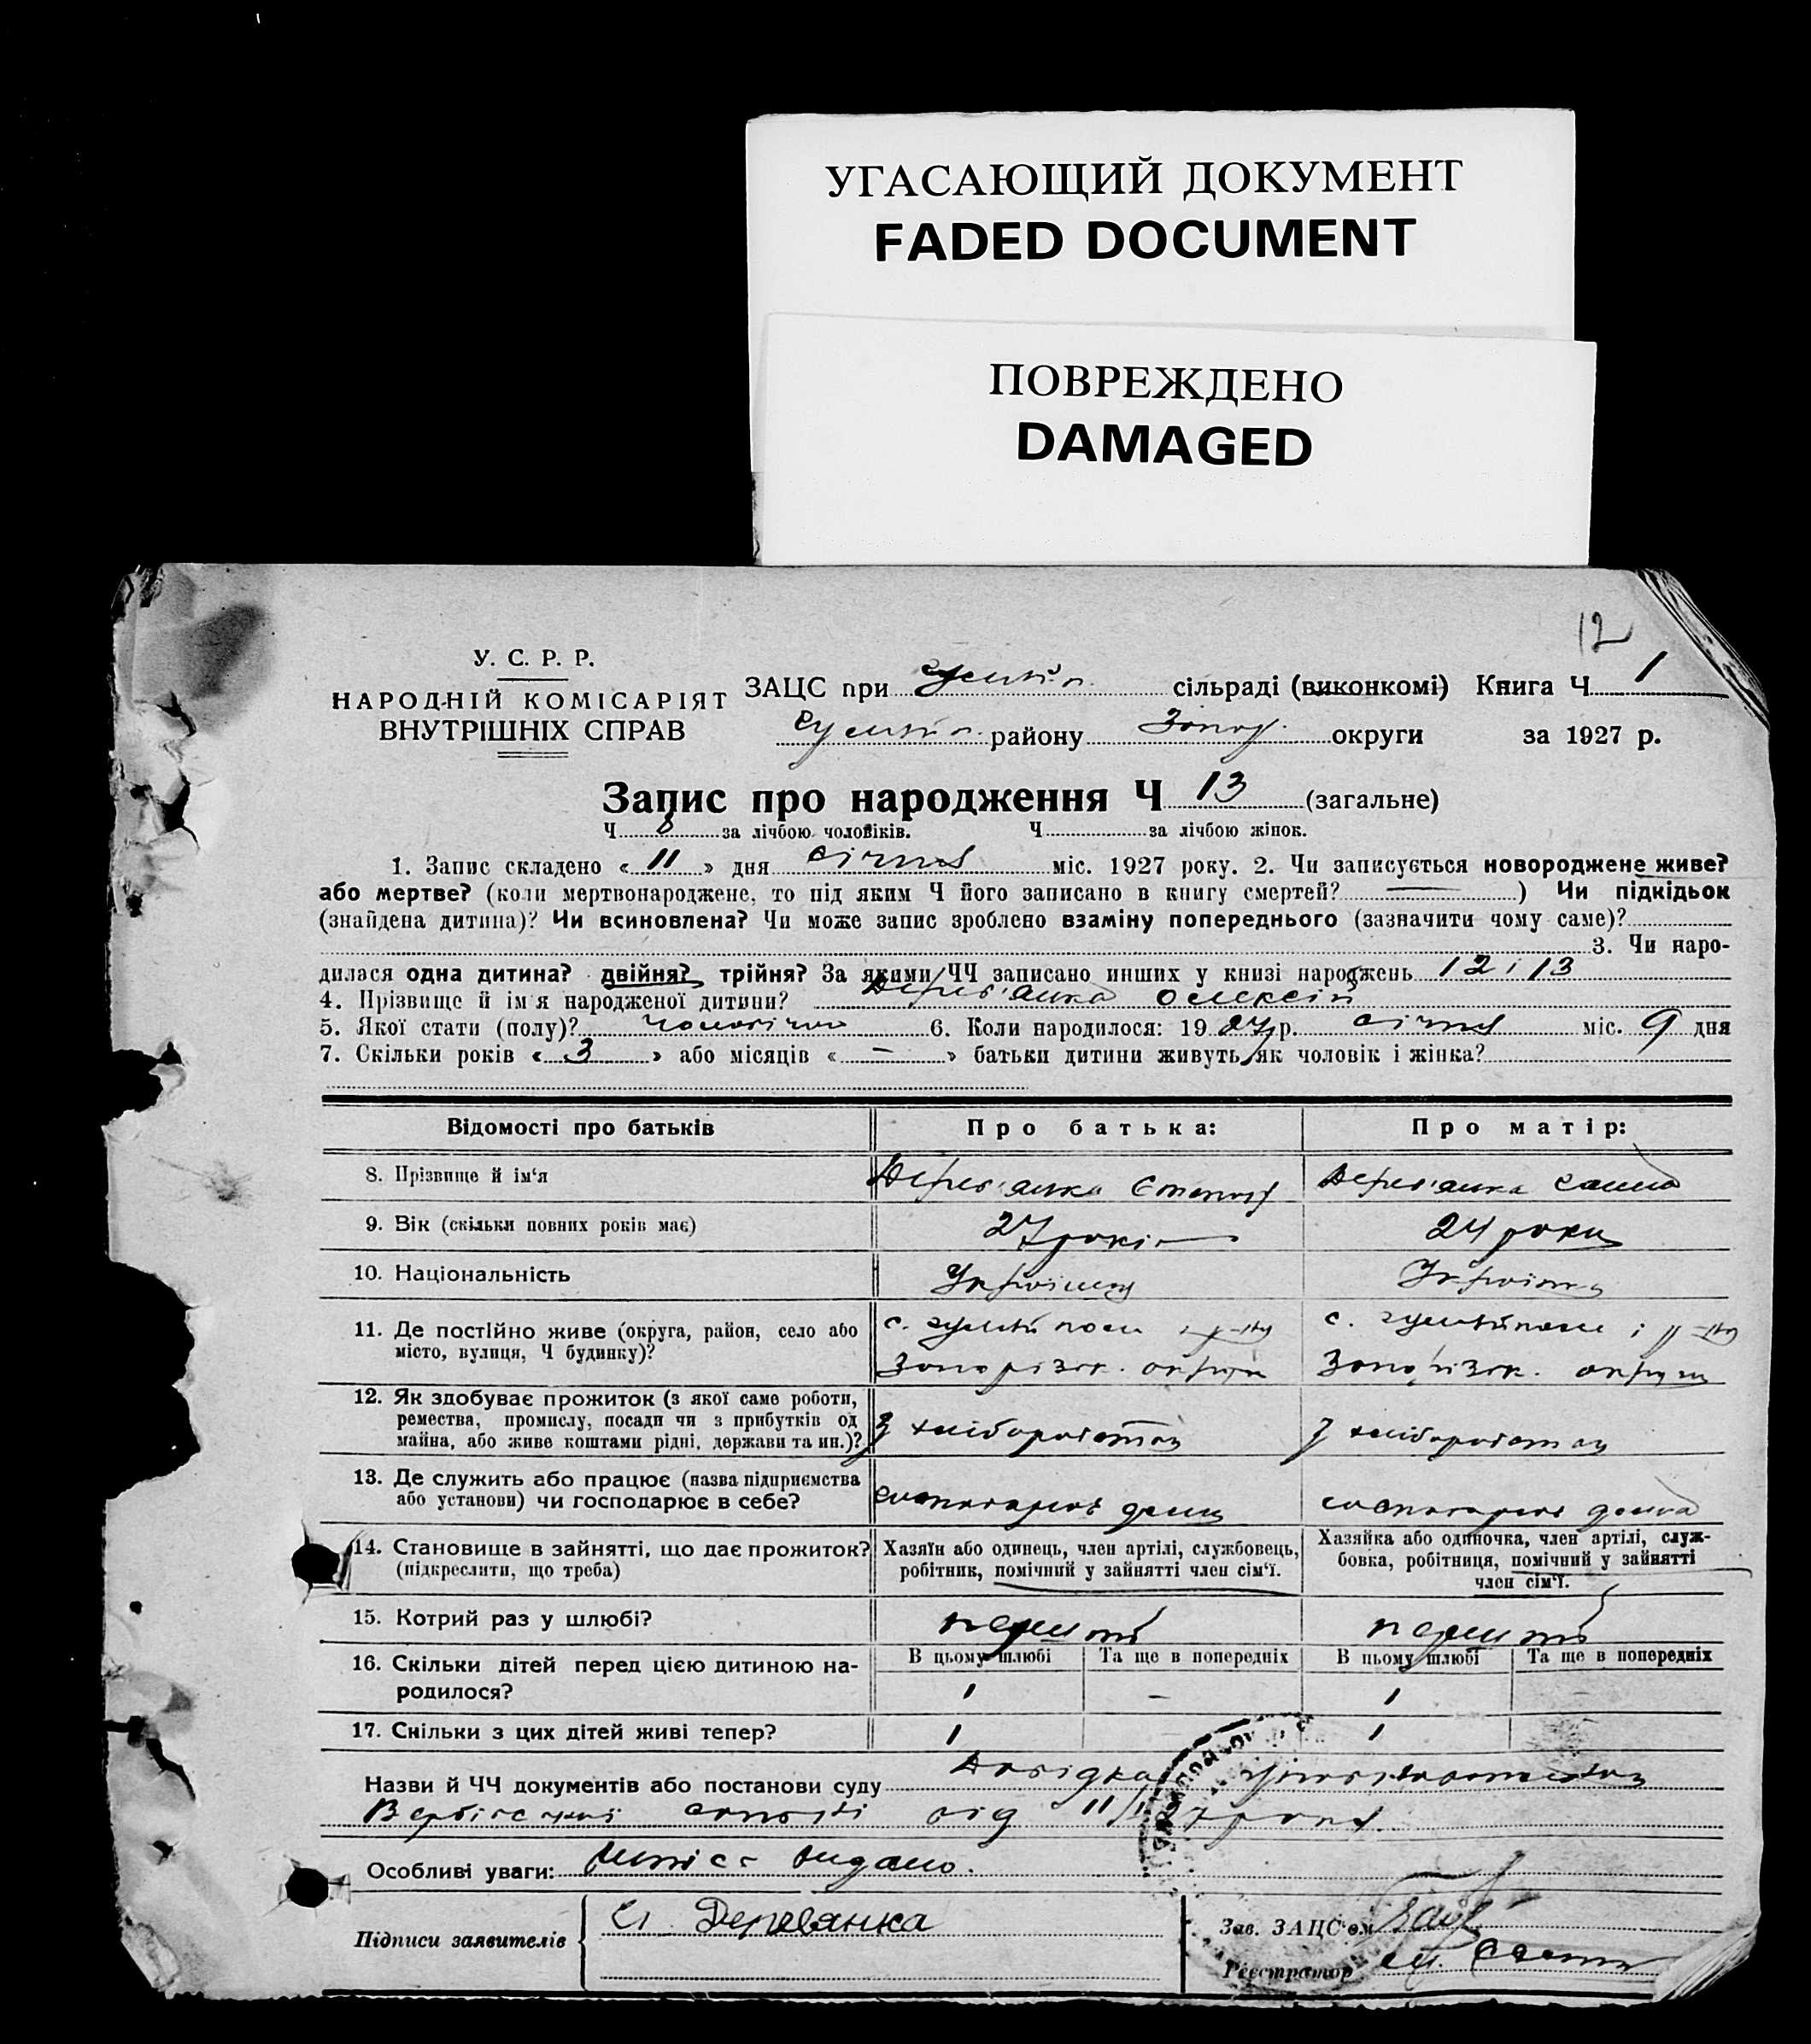 УГАСАЮЩИЙ ДОКУМЕНТ
FADED DOCUMENT
ПОВРЕЖДЕНО
DAMAGED
12
У. С. Р. Р.
НАРОДНІЙ КОМІСАРІЯТ
ВНУТРІШНІХ СПРАВ
ЗАЦС при сільраді (виконкомі) Книга Ч 1
району Запор. округи за 1927 р.
Запис про народження Ч 13 (загальне)
Ч 8 за лічбою чоловіків. Ч за лічбою жінок.
1. Запис складено « 11 » дня січня міс. 1927 року. 2. Чи записується новороджене живе?
або мертве? (коли мертвонароджене, то під яким Ч його записано в книгу смертей? — ) Чи підкідьок
(знайдена дитина)? Чи всиновлена? Чи може запис зроблено взаміну попереднього (зазначити чому саме)?
3. Чи наро-
дилася одна дитина? двійня? трійня? За якими ЧЧ записано инших у книзі народжень 12 і 13
4. Прізвище й ім'я народженої дитини? Дерев'янко Олексій
5. Якої стати (полу)? чоловічої 6. Коли народилося: 19 27 р. січня міс. 9 дня
7. Скільки років « 3 » або місяців « — » батьки дитини живуть, як чоловік і жінка?
Відомості про батьків Про батька: Про матір:
8. Прізвище й ім'я Дерев'янко Степан Дерев'янко
9. Вік (скільки повних років має) 27 років 24 роки
10. Національність Українець Українка
11. Де постійно живе (округа, район, село або
місто, вулиця, Ч будинку)?
с. Гуляйполе і р-ну с. Гуляйполе і р-ну
Запорізьк. округи Запорізьк. округи
12. Як здобуває прожиток (з якої саме роботи,
ремества, промислу, посади чи з прибутків од
майна, або живе коштами рідні, держави та ин.)?
З хліборобства З хліборобства
13. Де служить або працює (назва підприємства
або установи) чи господарює в себе?
господарює дома господарює дома
14. Становище в зайнятті, що дає прожиток?
(підкреслити, що треба)
Хазяїн або одинець, член артілі, службовець,
робітник, помічний у зайнятті член сім'ї.
Хазяйка або одиночка, член артілі, служ-
бовка, робітниця, помічний у зайнятті
член сім'ї.
15. Котрий раз у шлюбі? перший перший
16. Скільки дітей перед цією дитиною на-
родилося?
В цьому шлюбі Та ще в попередніх В цьому шлюбі Та ще в попередніх
1 — 1
17. Скільки з цих дітей живі тепер? 1 — 1
Назви й ЧЧ документів або постанови суду Довідка
від 11/I
Особливі уваги: видано.
Підписи заявителів Деревянка
Зав. ЗАЦС'ом
Реєстратор